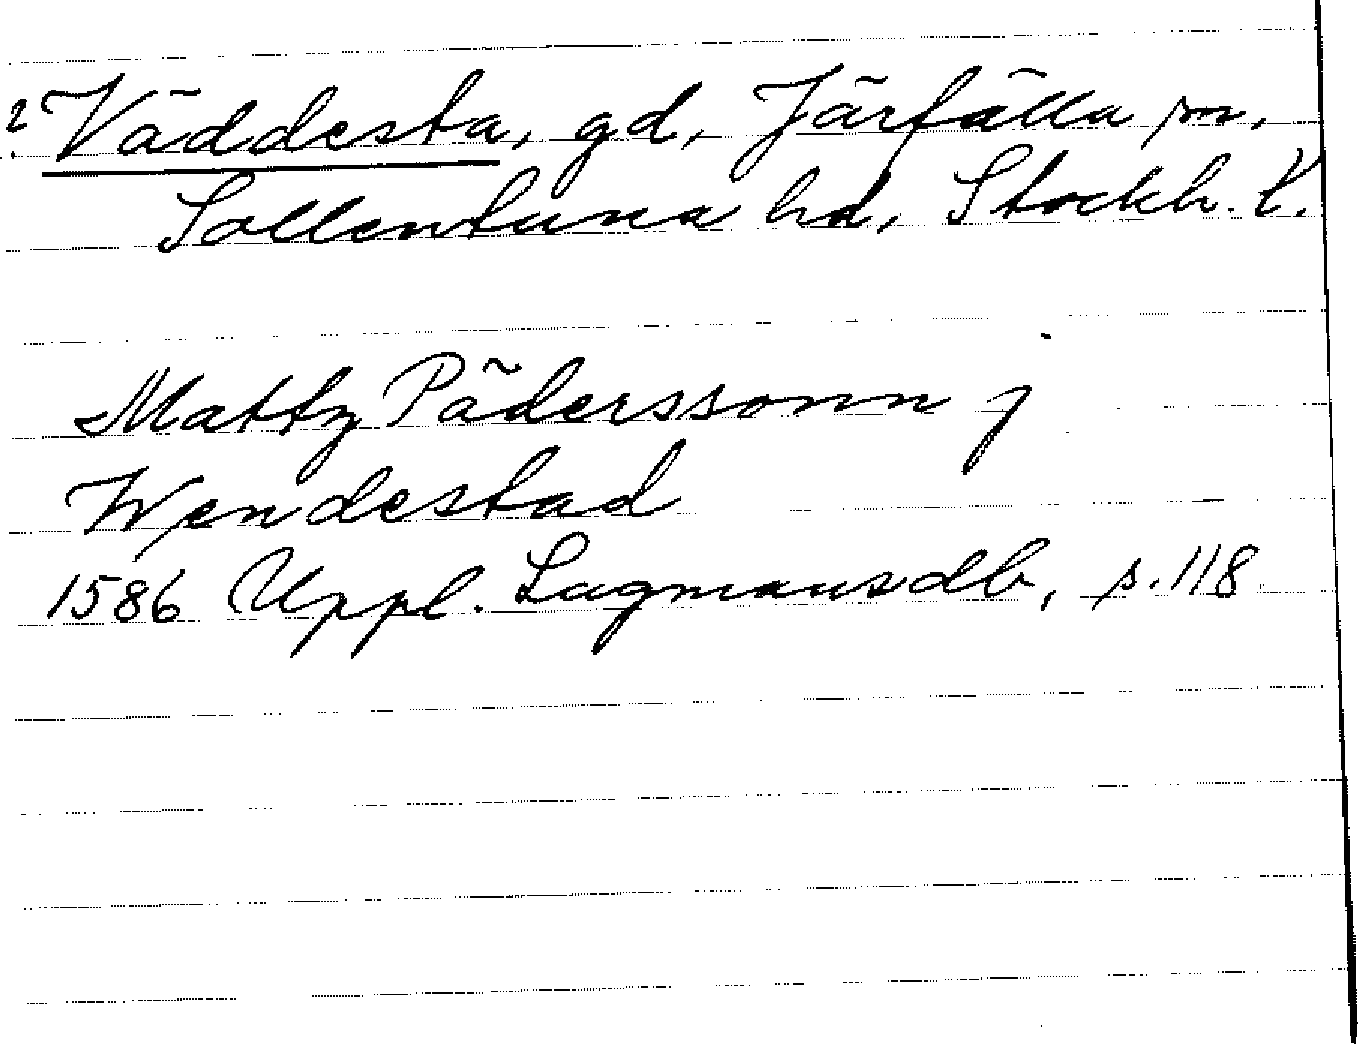 ? Väddesta, gd, Järfälla sn,
Sollentuna hd, Stockh. l.
Mattz Päderssonn j
Wendestad
1586 Uppl. Lagmansdb, s. 118